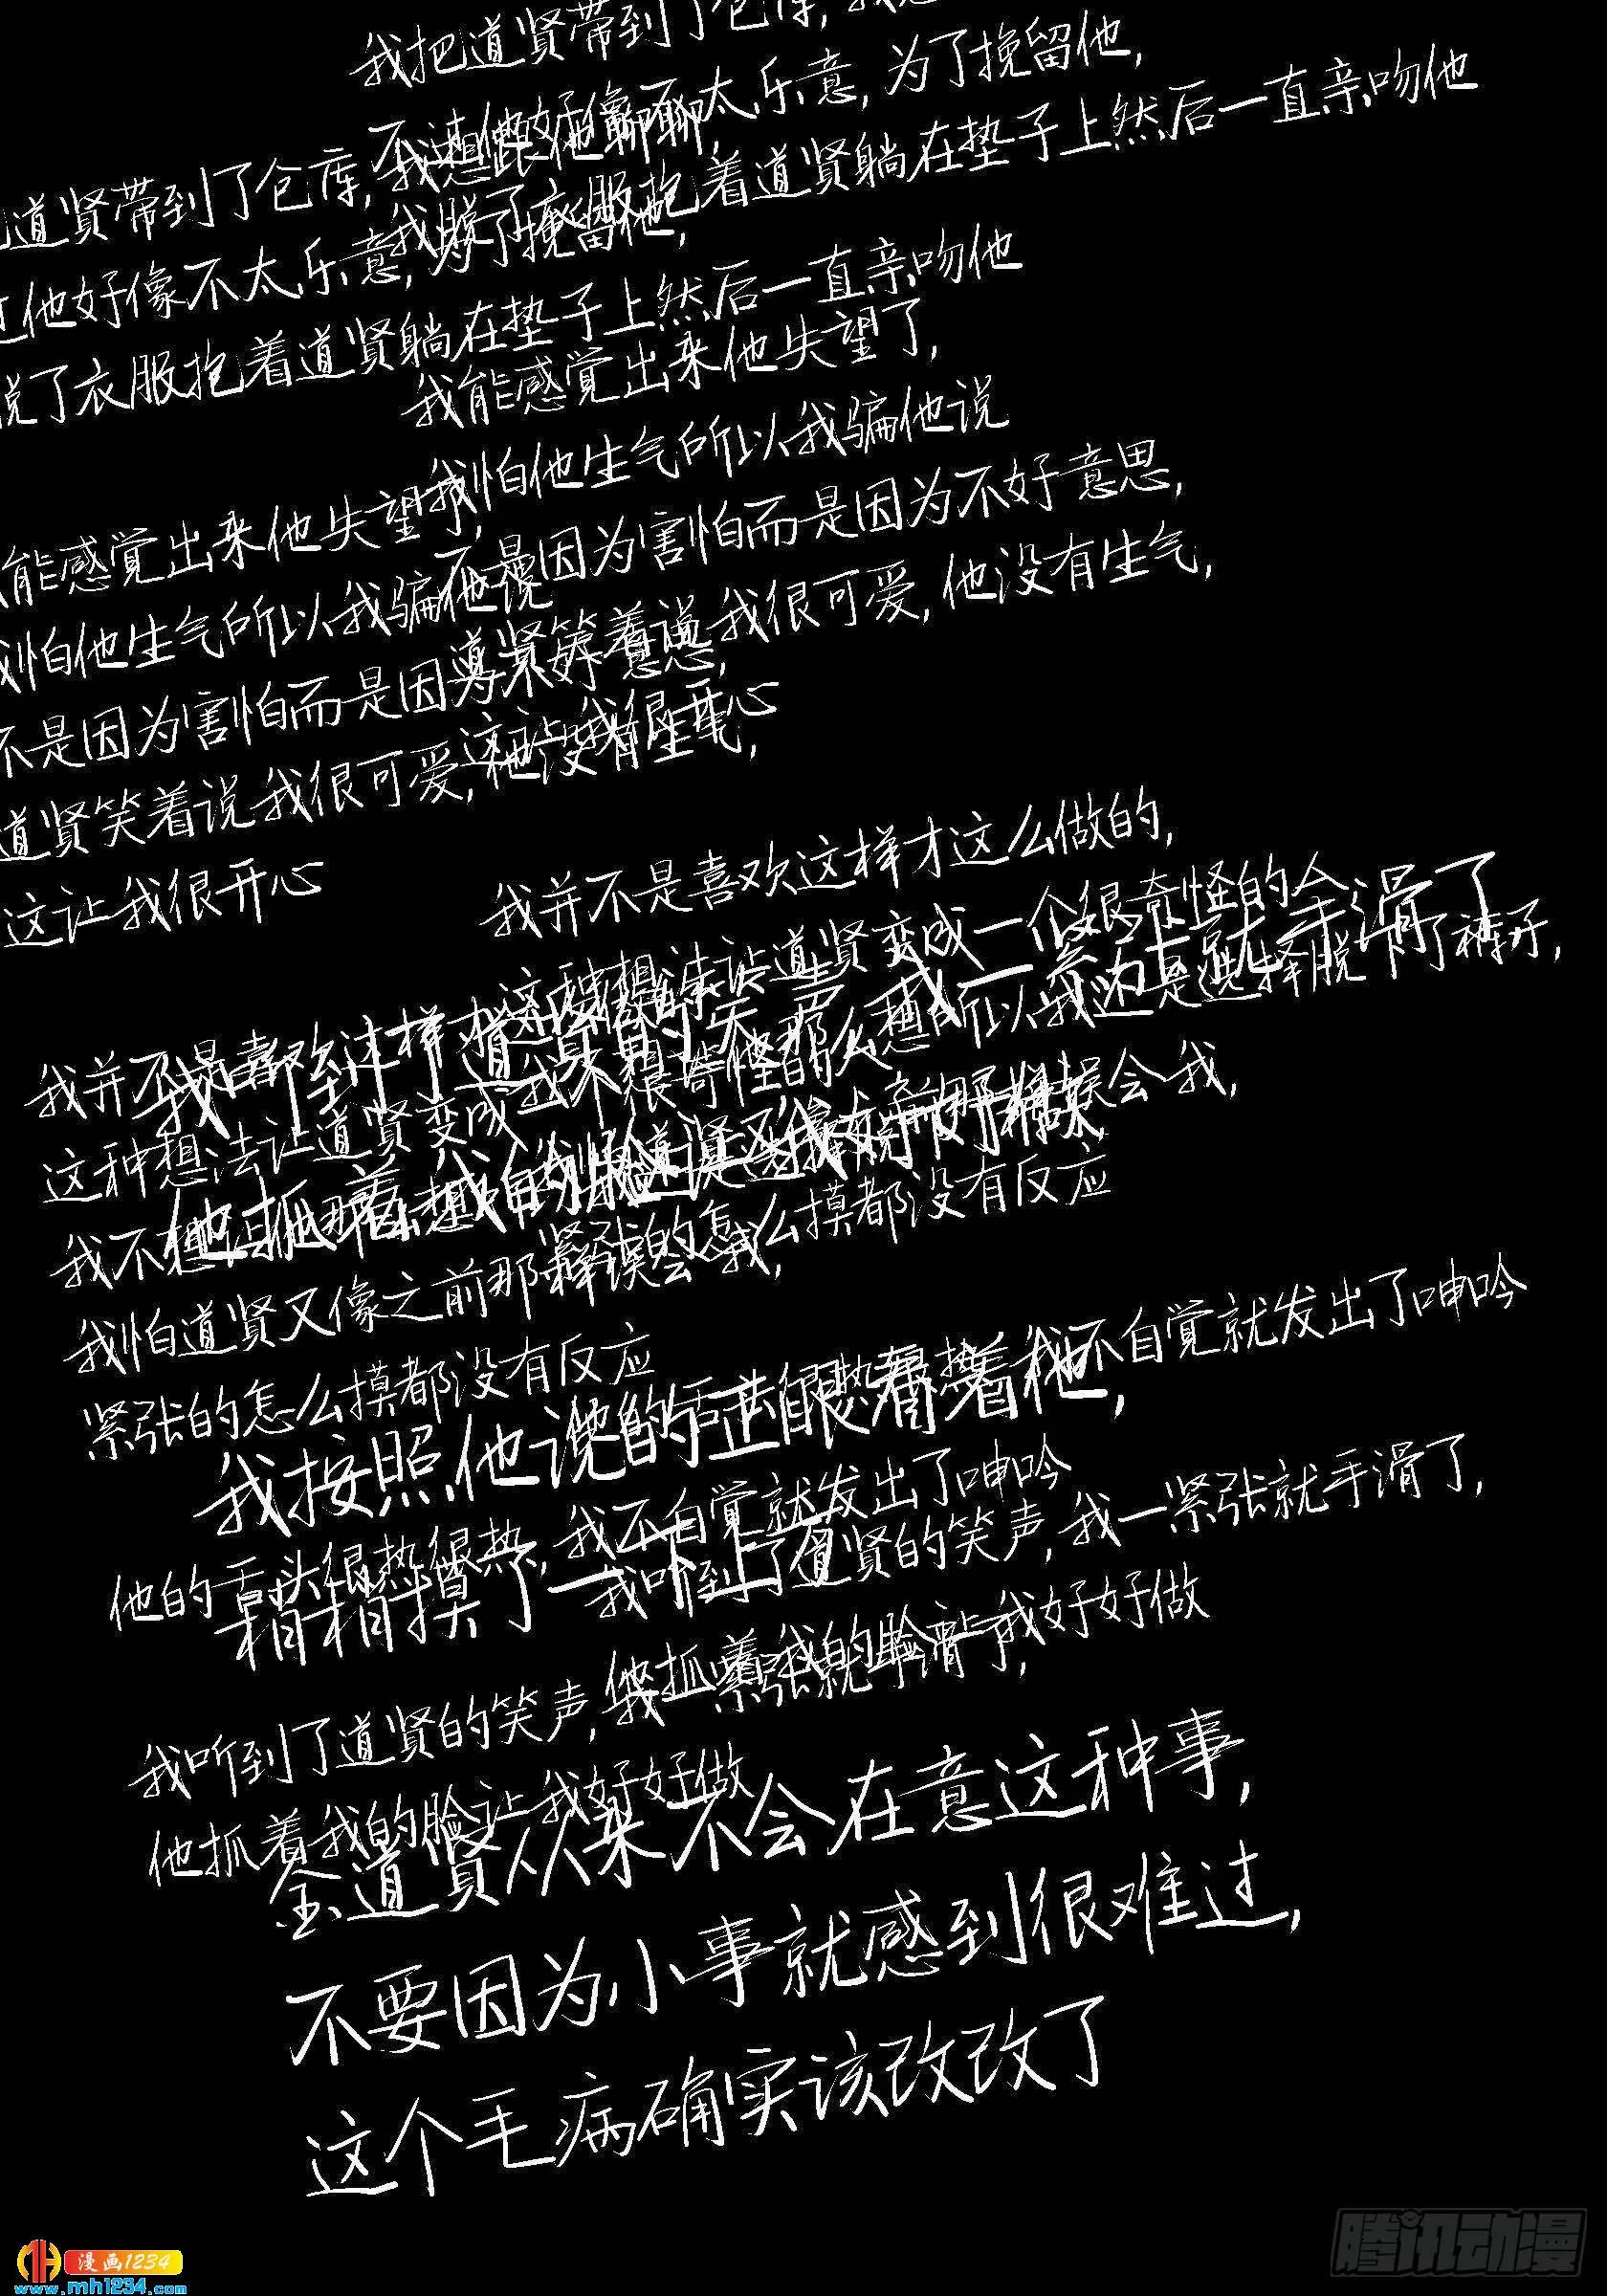 我把道贤带到了仓库,
不过他好像不太乐意, 为了挽留他,
我脱了衣服抱着道贤躺在垫子上然后一直亲吻他
我能感觉出来他失望了,
我怕他生气所以我骗他说
不是因为害怕而是因为不好意思,
道贤笑着说我很可爱, 他没有生气,
这让我很开心
道贤带到了仓库, 我想跟他聊聊,
他好像不太乐意, 为了挽留他,
脱了衣服抱着道贤躺在垫子上然后一直亲吻他
能感觉出来他失望了,
我怕他生气所以我骗他说
不是因为害怕而是因为不好意思,
道贤笑着说我很可爱, 他没有生气,
这让我很开心
我并不是喜欢这样才这么做的,
这种想法让道贤变成一个很奇怪的人
我不想让他那么想所以我还是选择脱下了裤子,
我怕道贤又像之前那样误会我,
紧张的怎么摸都没有反应
他的舌头很热很热, 我不自觉就发出了呻吟
我听到了道贤的笑声, 我一紧张就手滑了,
他抓着我的脸让我好好做
我并不是喜欢这样才这么做的,
这种想法让道贤变成一个很奇怪的人
我不想让他那么想所以我还是选择脱下了裤子,
我怕道贤又像之前那样误会我,
紧张的怎么摸都没有反应
他的舌头很热很热, 我不自觉就发出了呻吟
我听到了道贤的笑声, 我一紧张就手滑了,
他抓着我的脸让我好好做
我听到了道贤的笑声, 我一紧张就手滑了
他抓着我的脸让我好好做
我按照他说的正眼看着他,
稍稍摸了一下上
金道贤从来不会在意这种事,
不要因为小事就感到很难过,
这个毛病确实该改改了
漫画1234
www.mh1234.com
腾讯动漫